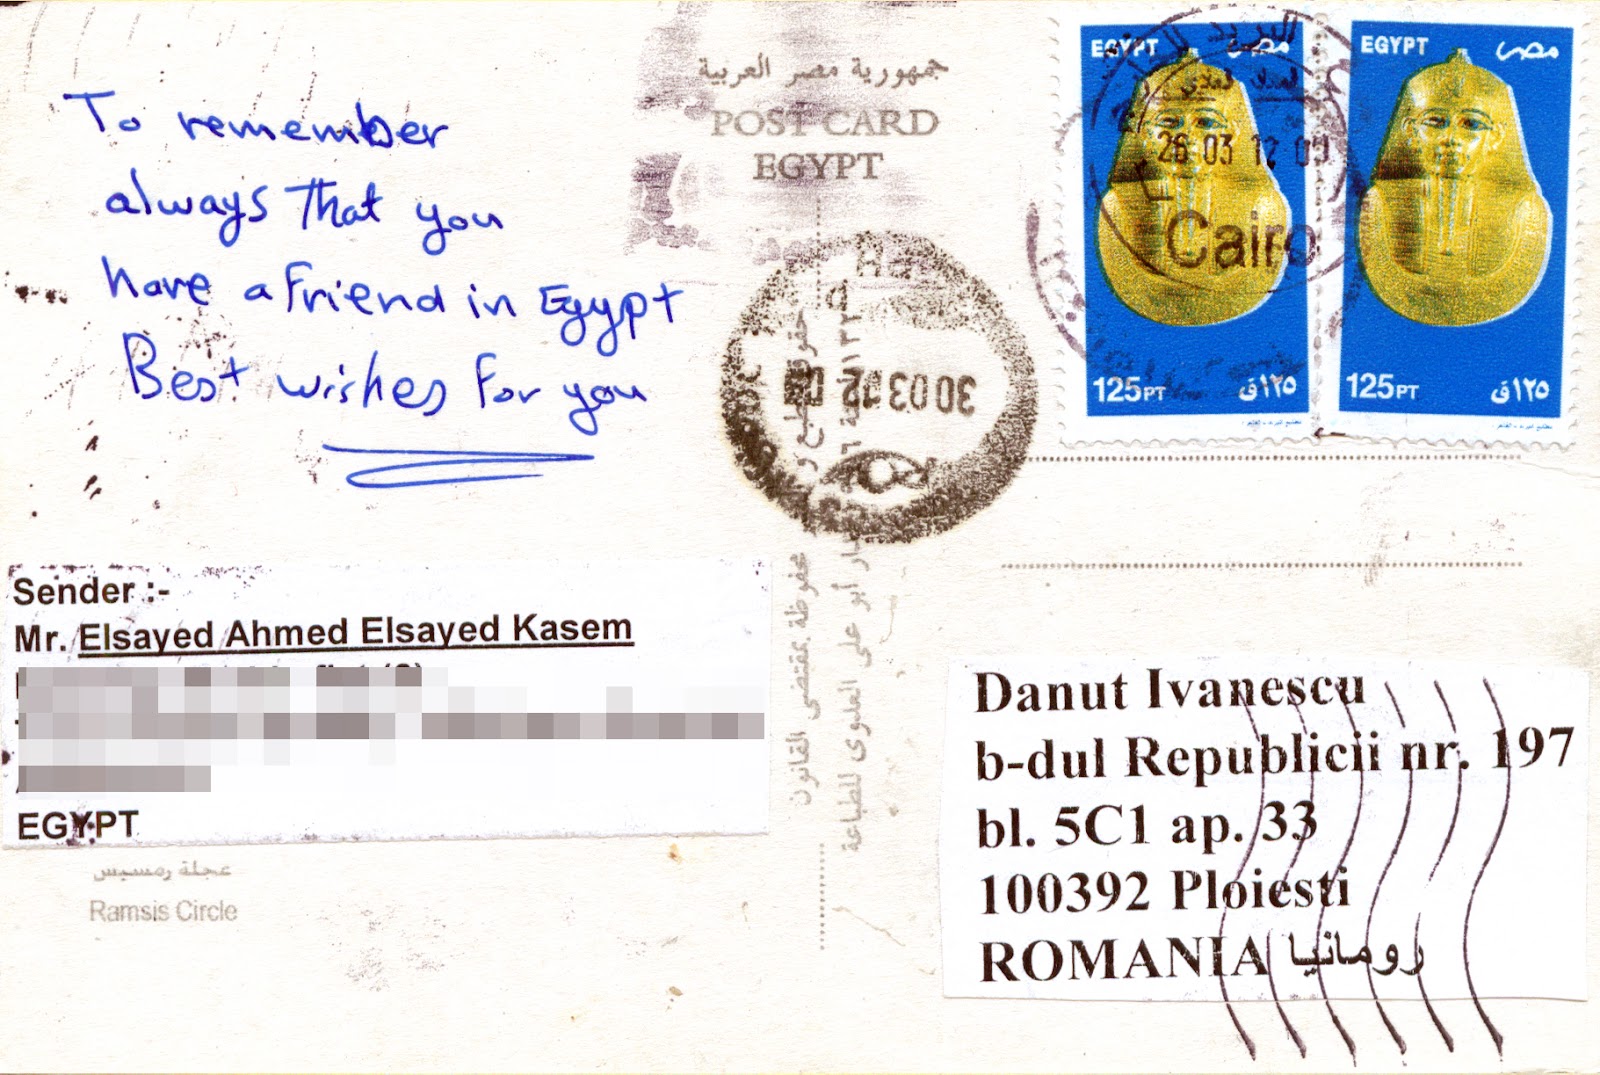 To remember
always that you
have a friend in Egypt
Best wishes for you
جمهورية مصر العربية
POST CARD
EGYPT
EGYPT مصر
125PT ق١٢٥
EGYPT مصر
125PT ق١٢٥
26 03 12
Cairo
30 03 12
Sender :-
Mr. Elsayed Ahmed Elsayed Kasem
EGYPT
عجلة رمسيس
Ramsis Circle
Danut Ivanescu
b-dul Republicii nr. 197
bl. 5C1 ap. 33
100392 Ploiesti
ROMANIA رومانيا